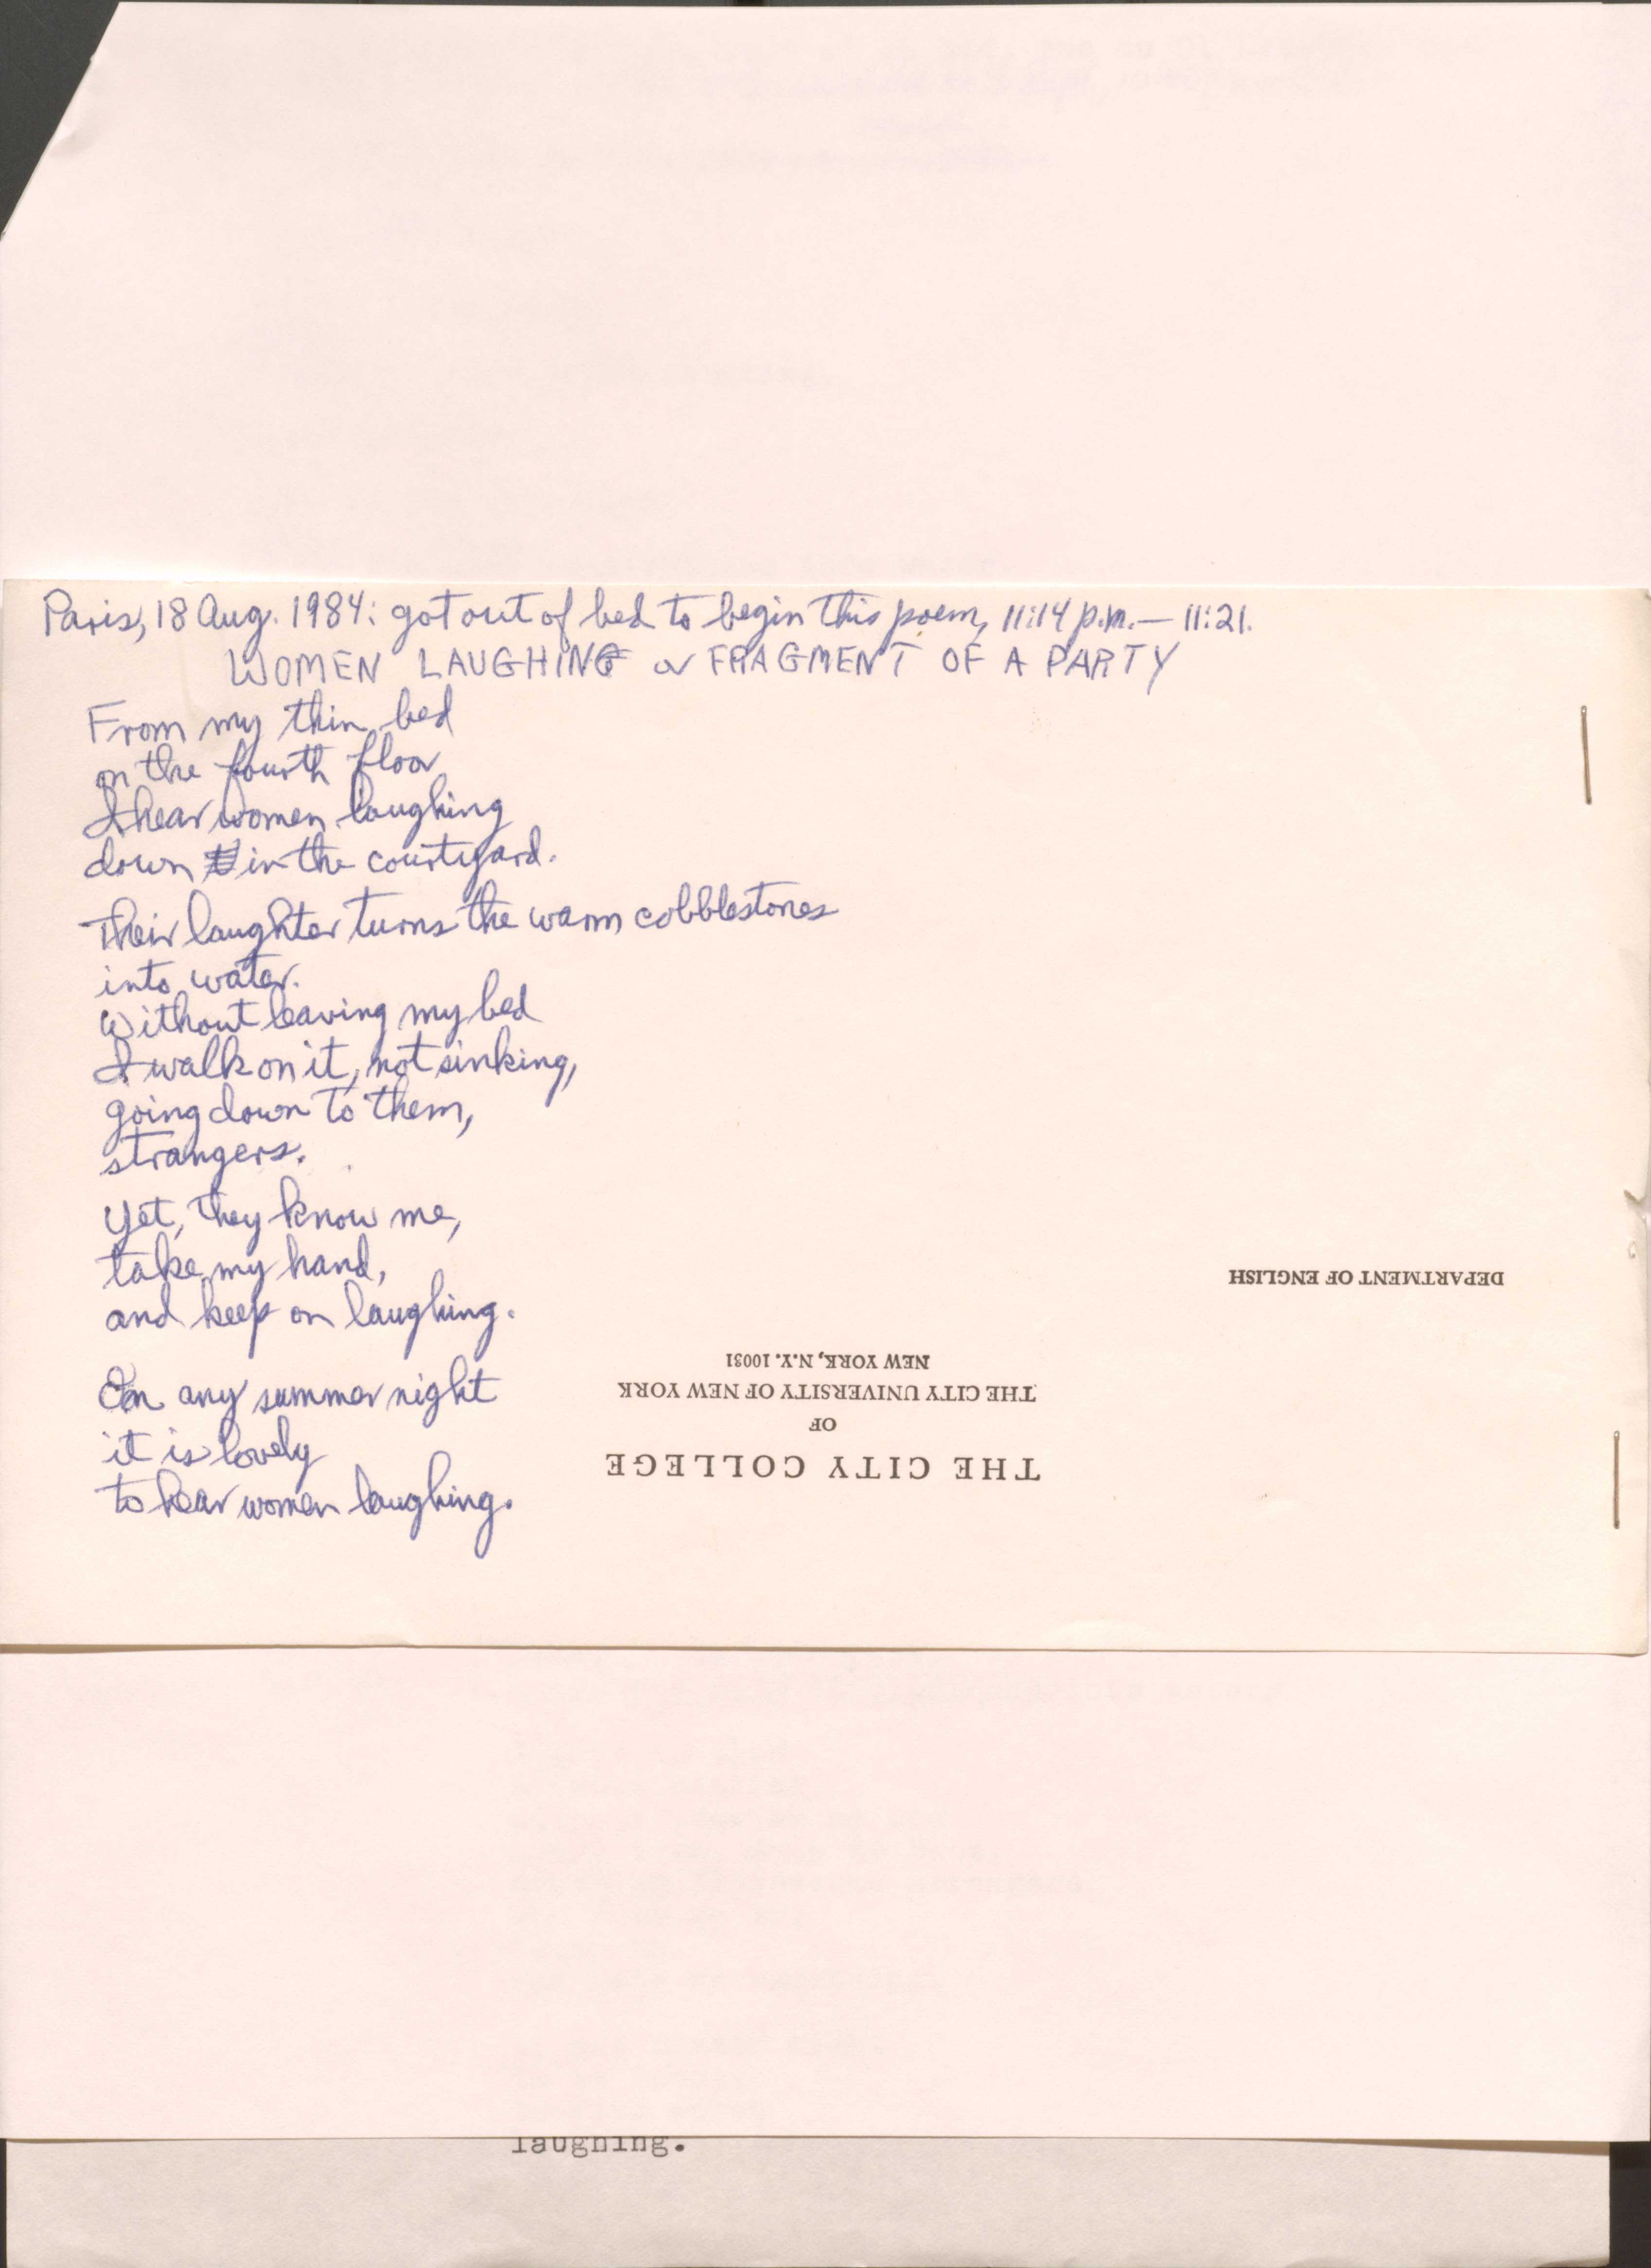 Paris, 18 Aug. 1984: got out of bed to begin this poem, 11:14 p.m. — 11:21.
WOMEN LAUGHING or FRAGMENT OF A PARTY
From my thin bed
on the fourth floor
I hear women laughing
down in the courtyard.
Their laughter turns the warm cobblestones
into water.
Without leaving my bed
I walk on it, not sinking,
going down to them,
strangers.
Yet, they know me,
take my hand,
and keep on laughing.
On any summer night
it is lovely
to hear women laughing.
DEPARTMENT OF ENGLISH
THE CITY COLLEGE
OF
THE CITY UNIVERSITY OF NEW YORK
NEW YORK, N.Y. 10031
laughing.